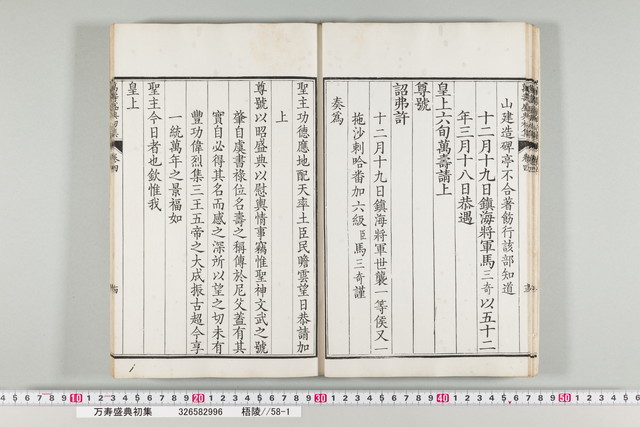 山建造碑亭不合著飭行該部知道
十二月十九日鎮海將軍馬三奇以五十二
年三月十八日恭遇
皇上六旬萬壽請上
尊號
詔弗許
十二月十九日鎮海將軍世襲一等侯又一
拖沙剌哈番加六級臣馬三奇謹
奏爲
聖主功德應地配天率土臣民瞻雲望日恭請加
上
尊號以昭盛典以慰輿情事竊惟聖神文武之號
肇自虞書祿位名壽之稱傳於尼父蓋有其
實自必得其名而感之深所以望之切未有
豐功偉烈集三王五帝之大成振古超今享
一統萬年之景福如
聖主今日者也欽惟我
皇上
卷四
10 20 30 40 50
万寿盛典初集 326582996 梧陵//58-1